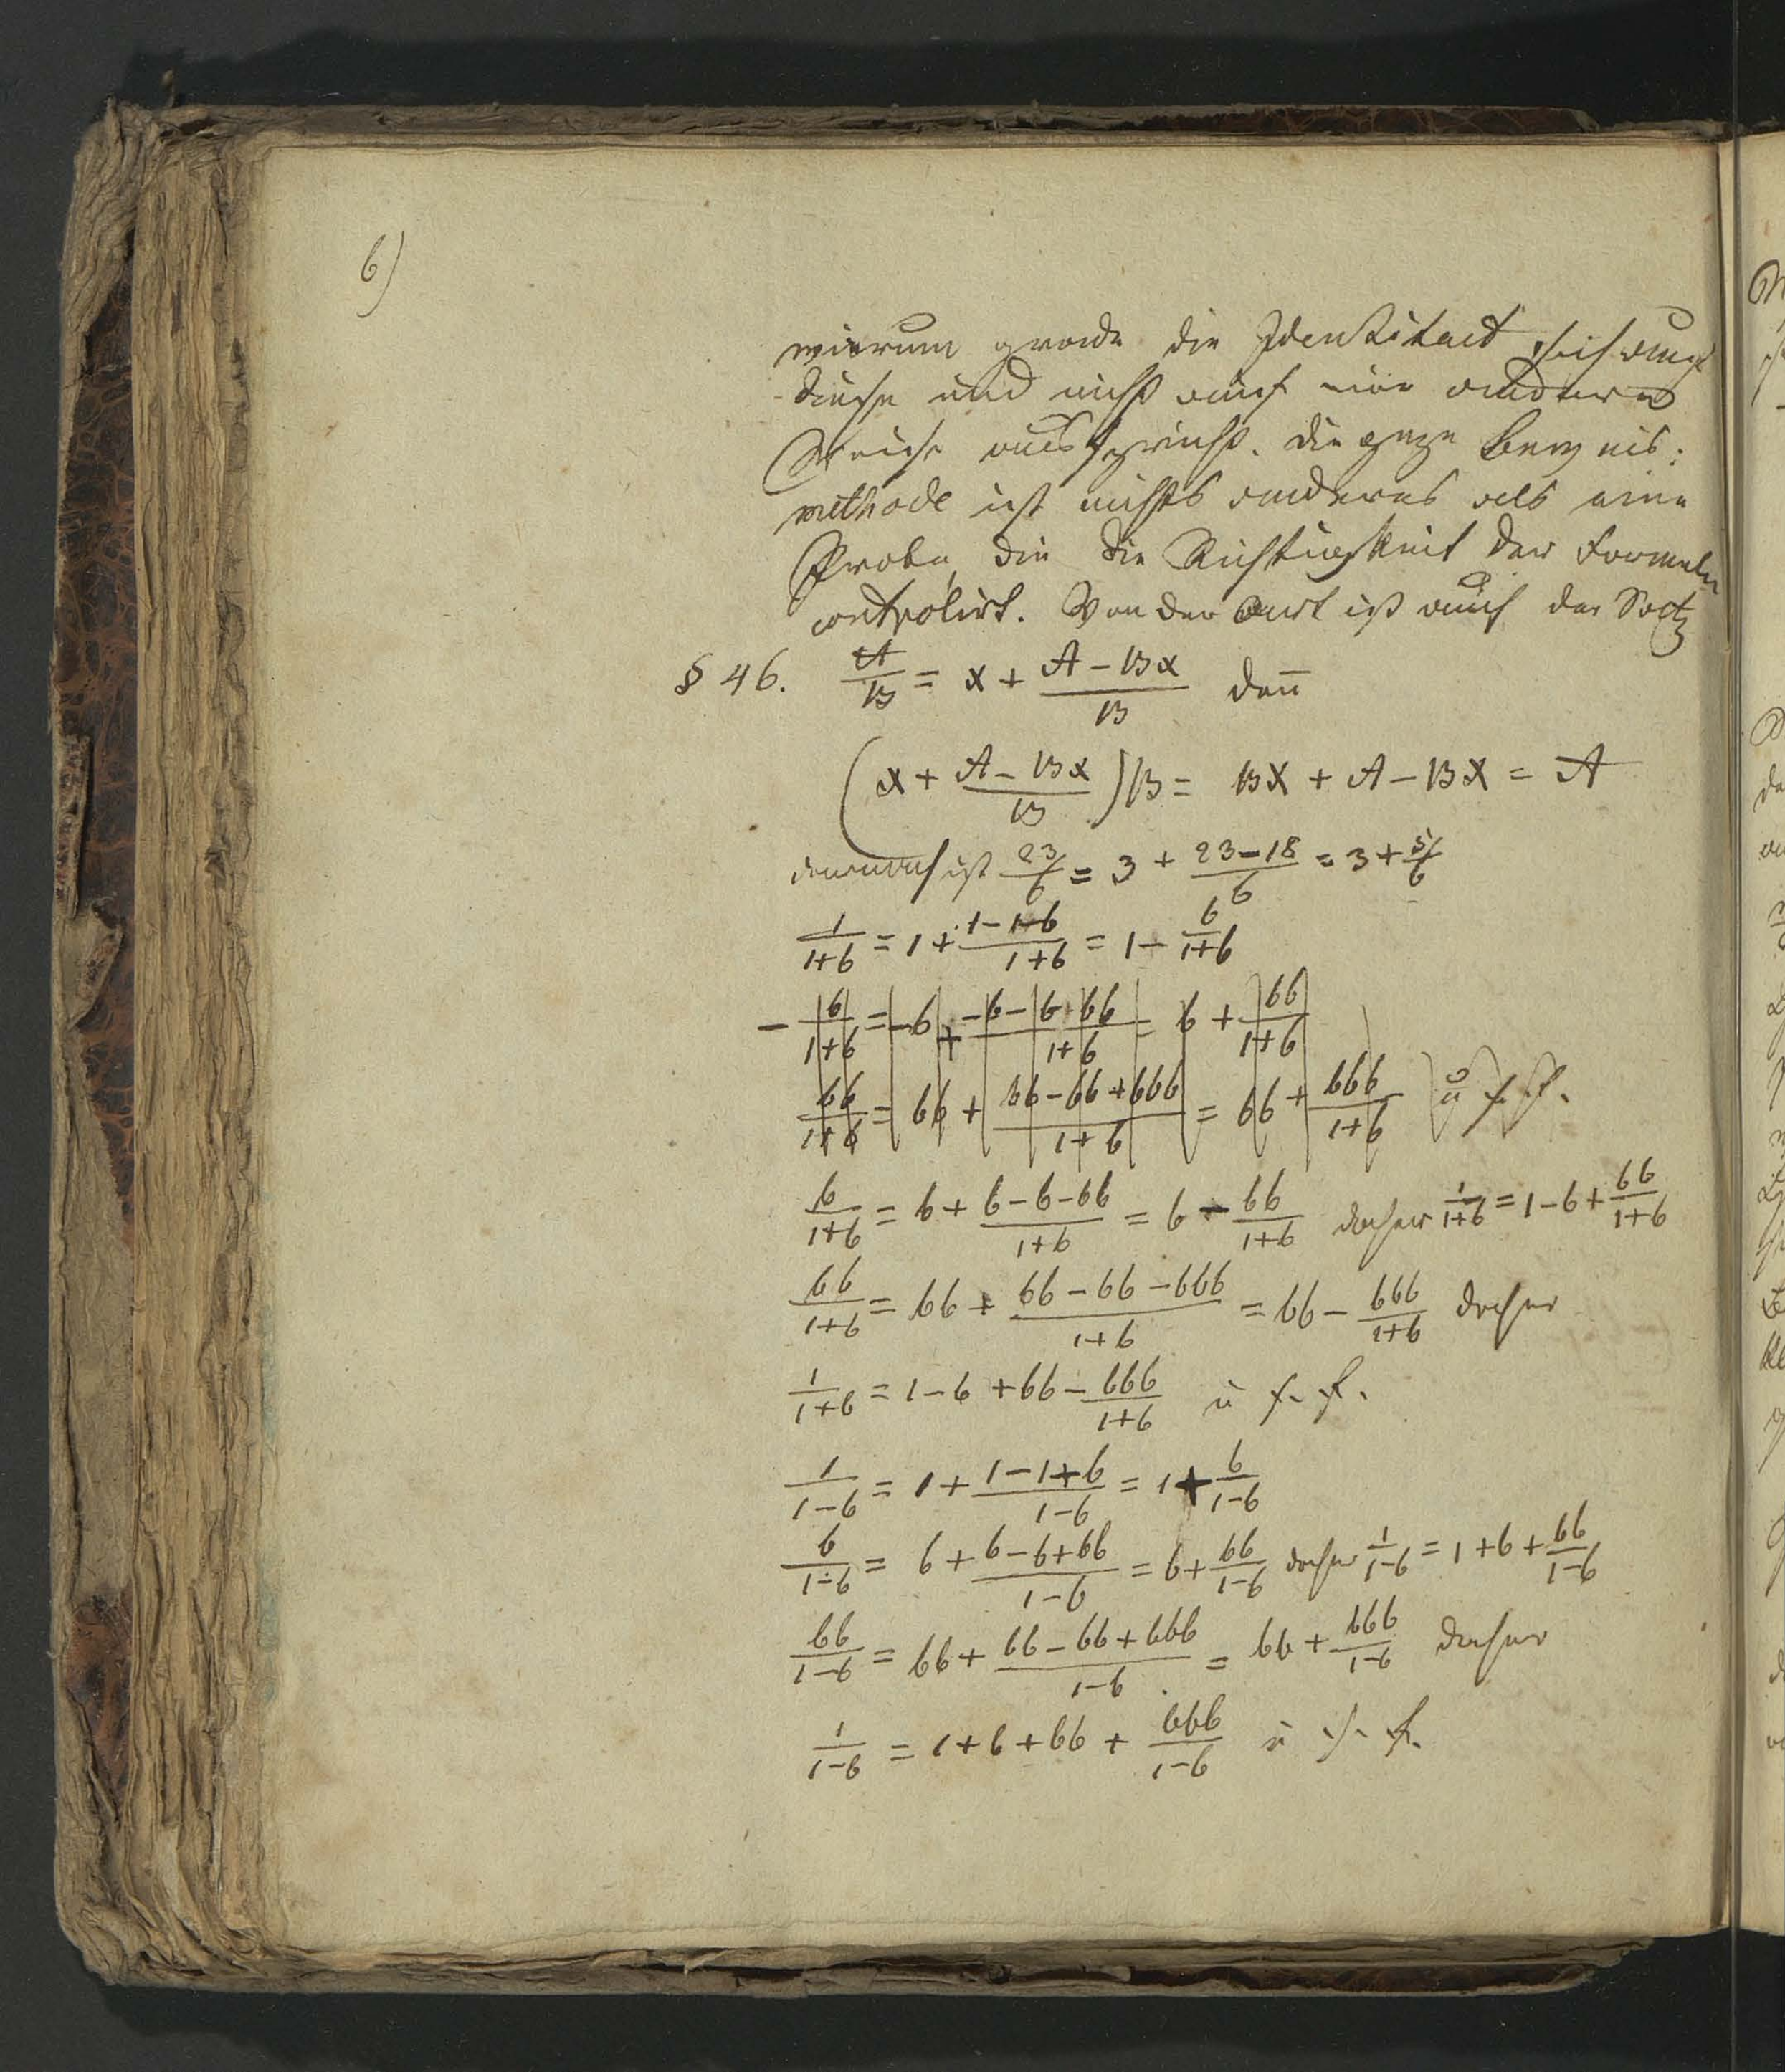 6)
warum grade die Identitaet sich auf
diese und nicht auf eine andere
Weise ausspricht. Die ganze Beweis:
methode ist nichts anderes als eine
Probe, die die Richtigkeit der Formeln
controlirt. Von der Art ist auch der Satz
§ 46. A/B = x + (A - Bx)/B den̄
(x + (A - Bx)/B) B = Bx + A - Bx = A
demnach ist 23/6 = 3 + (23-18)/6 = 3 + 5/6
1/(1+b) = 1 + (1-1-b)/(1+b) = 1 - b/(1+b)
- b/(1+b) = -b + (-b-b+bb)/(1+b) = b + bb/(1+b)
bb/(1+b) = bb + (bb-bb+bbb)/(1+b) = bb + bbb/(1+b) u s. f.
b/(1+b) = b + (b-b-bb)/(1+b) = b - bb/(1+b) daher 1/(1+b) = 1-b+bb/(1+b)
bb/(1+b) = bb + (bb-bb-bbb)/(1+b) = bb - bbb/(1+b) daher
1/(1+b) = 1-b+bb-bbb/(1+b) u s. f.
1/(1-b) = 1 + (1-1+b)/(1-b) = 1 + b/(1-b)
b/(1-b) = b + (b-b+bb)/(1-b) = b + bb/(1-b) daher 1/(1-b) = 1+b+bb/(1-b)
bb/(1-b) = bb + (bb-bb+bbb)/(1-b) = bb + bbb/(1-b) daher
1/(1-b) = 1+b+bb+bbb/(1-b) u s. f.